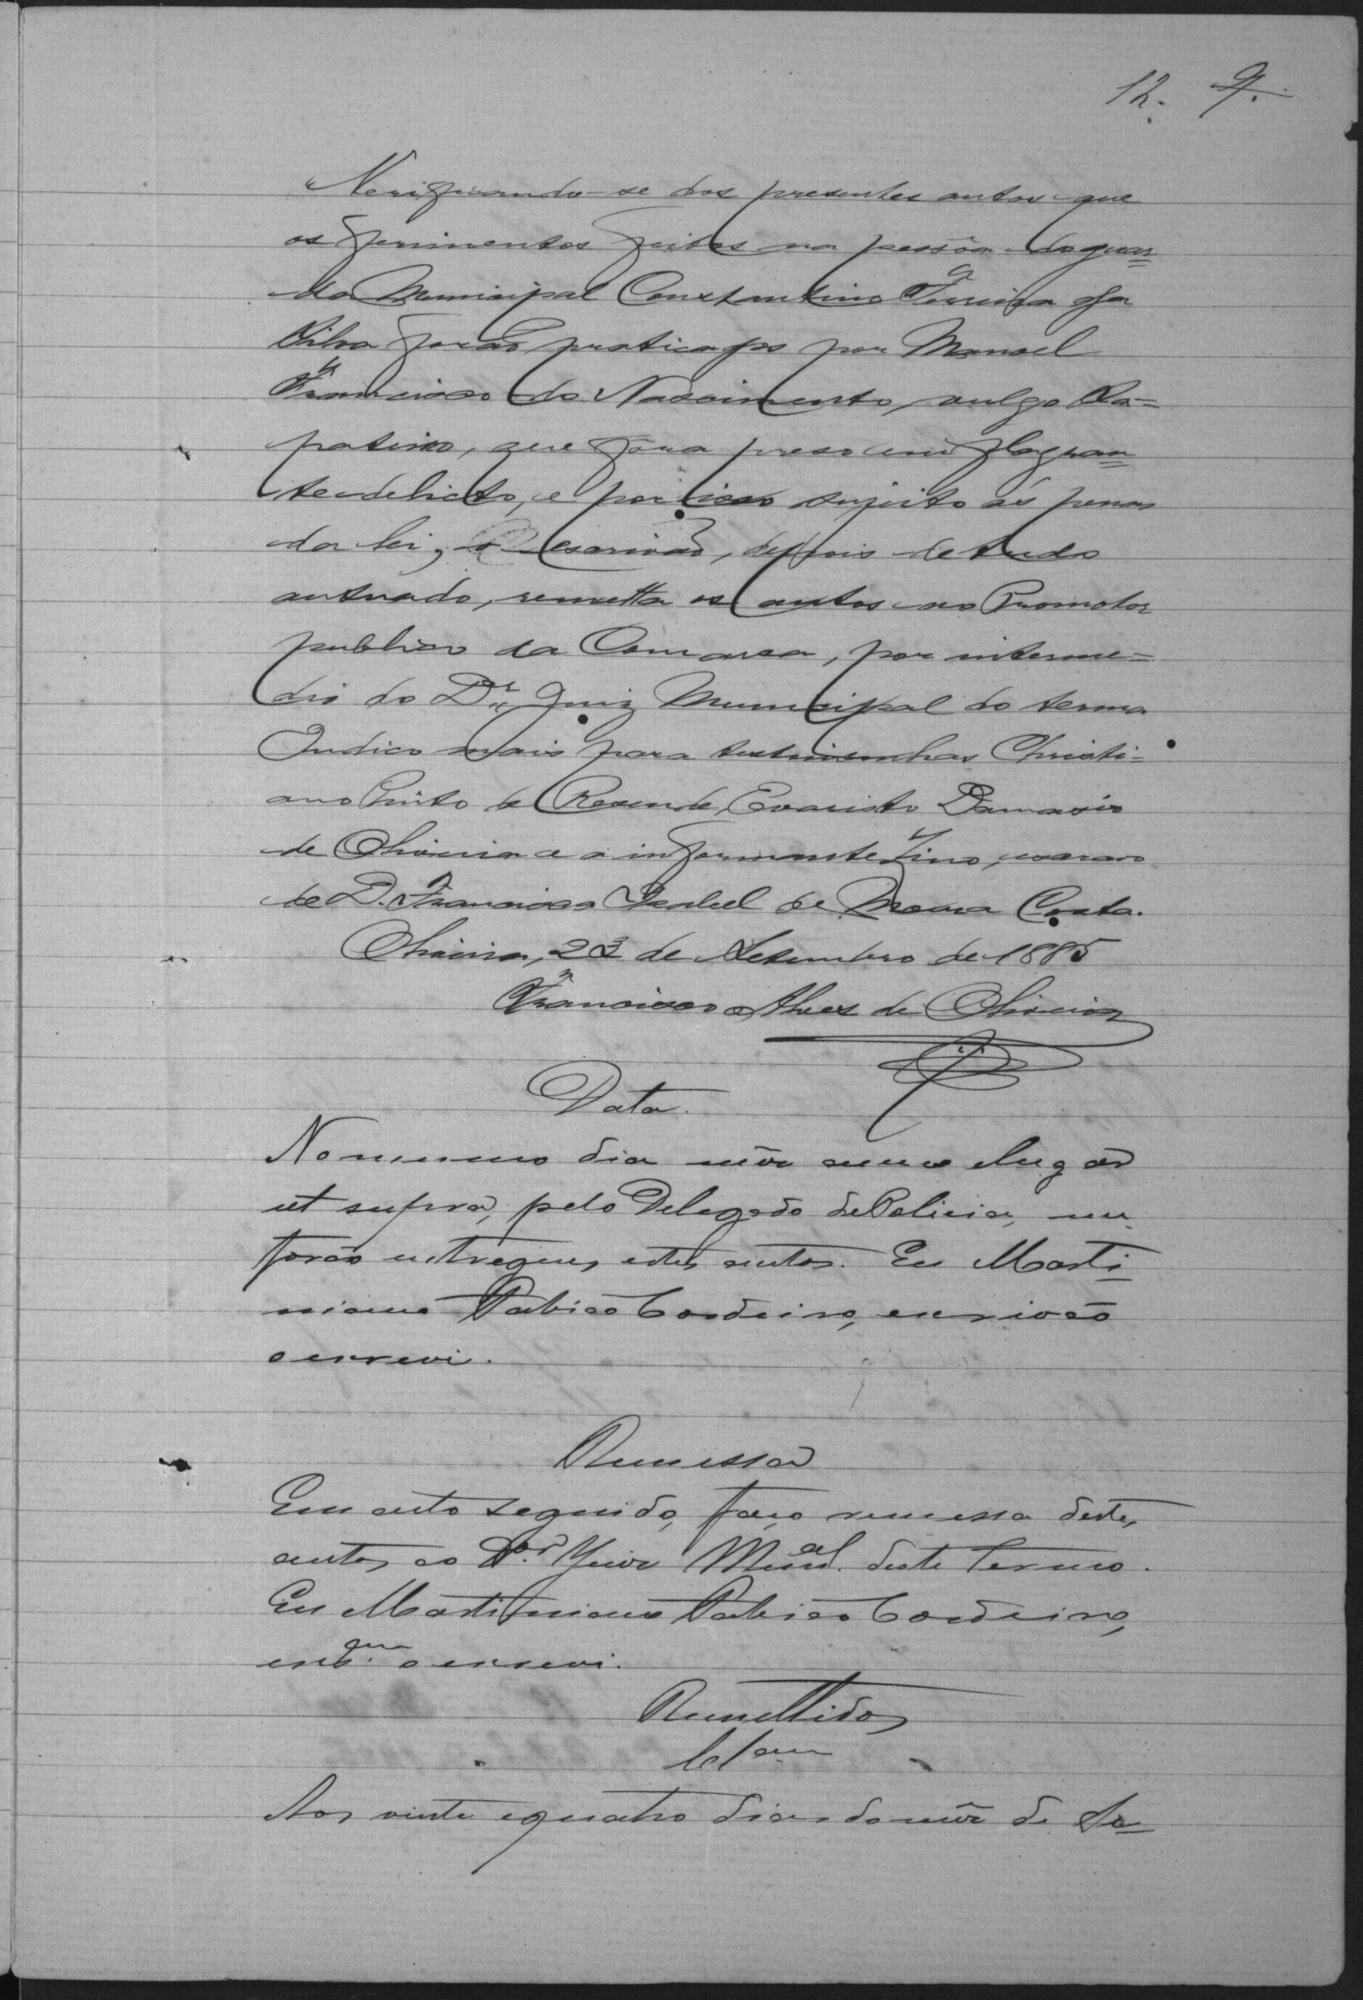 12. 9.
Verificando-se dos presentes autos que
os ferimentos feitos na pessôa do guar=
da Municipal Constantino Ferreira da
Silva forão praticados por Manoel
Francisco do Nascimento, vulgo Sa=
pateiro, que fôra preso em flagran=
te delicto, e por isso sujeito ás penas
da lei, o escrivão, depois de tudo
autuado, remetta os autos ao Promotor
publico da Comarca, por interme=
dio do Dr. Juiz Municipal do termo
Indico mais para testemunhas Christi=
ano Pinto de Resende, Evaristo Damasio
de Oliveira e a informante
de D. Francisca Izabel de Moura Costa.
Oliveira, 23 de Setembro de 1885
Francisco Alves de Oliveira
Data.
No mesmo dia mês anno e lugar
ut supra, pelo Delegado de Policia, me
forão entregues estes autos. Eu Marti=
niano Cordeiro, escrivão
o escrevi.
Remessa
Em acto seguido, faço remessa destes
autos ao Dor. Juiz Munal. deste Termo.
Eu Martiniano Cordeiro,
escam. o escrevi.
Remettidos
Clam
Aos vinte e quatro dias do mês de Se=